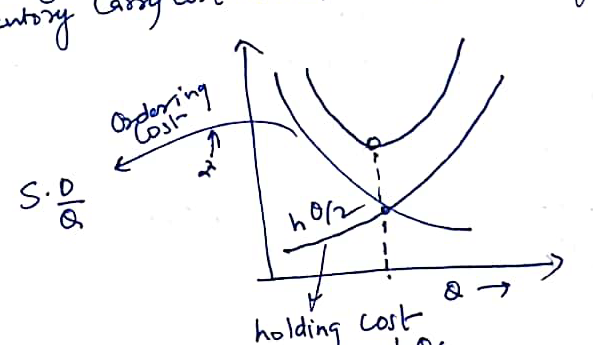 Inventory Carry cost
Ordering
Cost
S·D/Q
hQ/2
Q →
holding cost